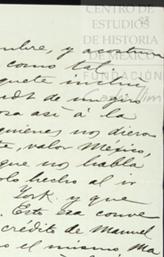 CENTRO DE
ESTUDIOS
DE HISTORIA
DE MÉXICO
FUNDACIÓN
mbre, y acostum
como tal
quete inclu
adt de un giro
osa así á la
quienes no dieron
te, valor México,
que no habla
olo hecho al ir
York. y que
. Este sea conve
crédito de Manuel
o el mismo Ma